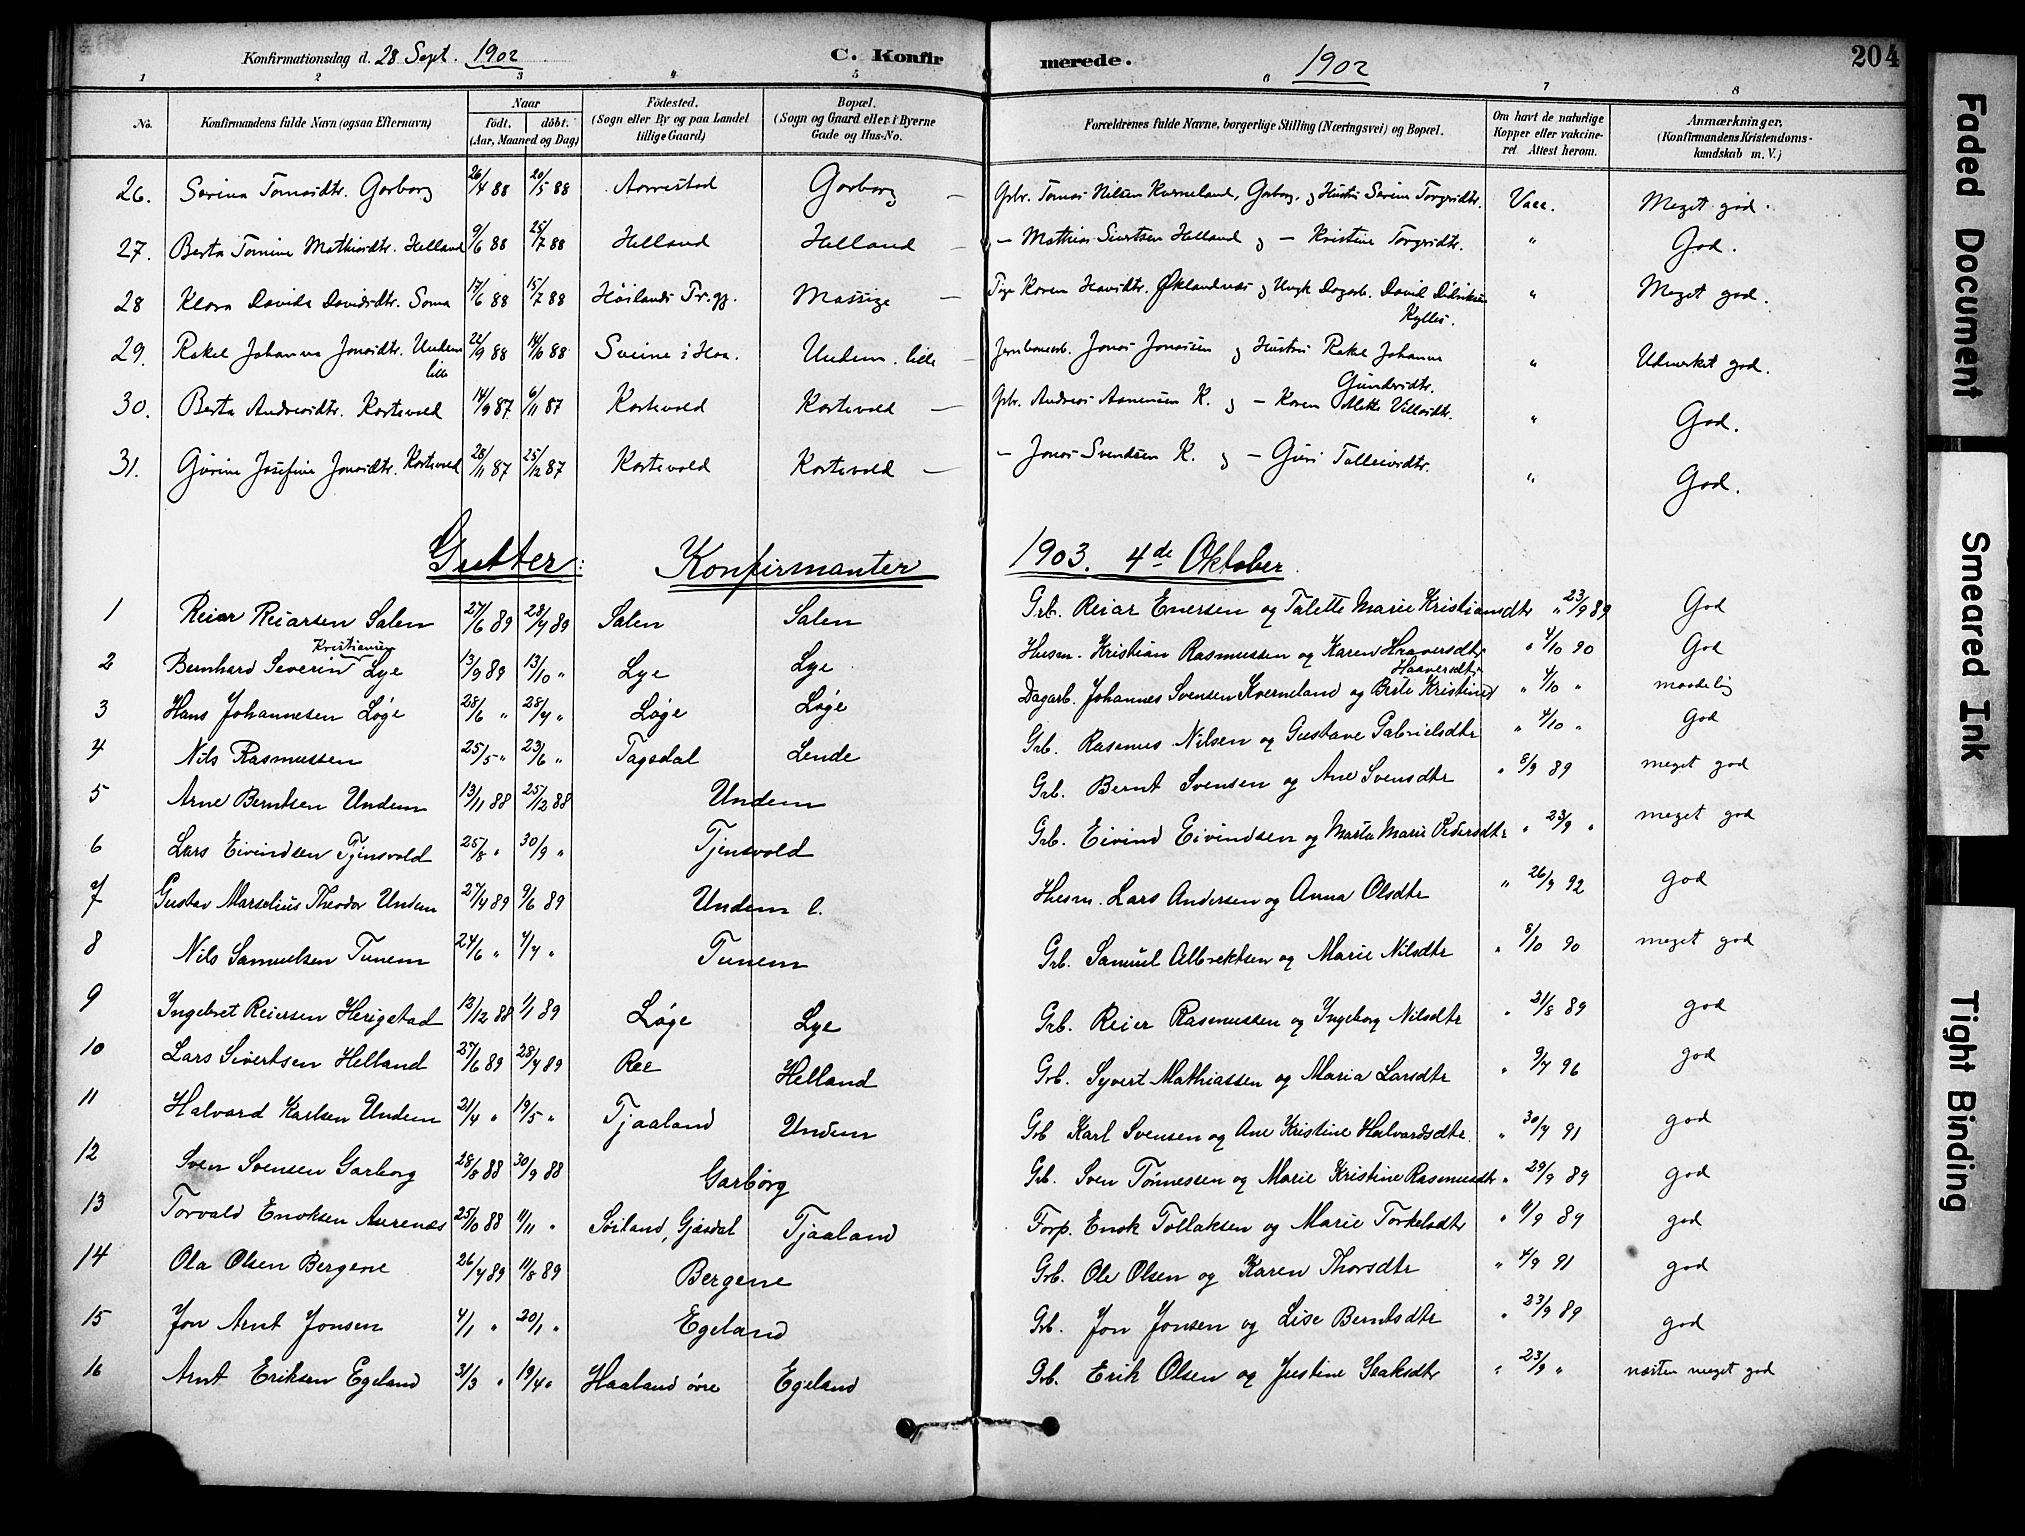 Konfirmationsdag d. 28 Sept. 1902 C. Konfir merede. 1902 204
1 2 3 4 5 6 7 8
No. Konfirmandens fulde Navn (ogsaa Efternavn) Naar födt. döbt. (Aar, Maaned og Dag) Födested. (Sogn eller By og paa Landet tillige Gaard) Bopæl. (Sogn og Gaard eller i Byerne Gade og Hus-No. Forældrenes fulde Navne, borgerlige Stilling (Næringsvei) og Bopæl. Om havt de naturlige Kopper eller vakcineret. Attest herom. Anmærkninger. (Konfirmandens Kristendomskundskab m. V.)
26. Serina Tomasdtr. Garborg 26/4 88 20/5 88 Aarrestad Garborg — Grbr. Tomas Nilsen Kverneland, Garborg, og Hustru Serine Torgersdtr. Vacc. Meget god.
27. Berta Tomine Mathiasdtr. Helland 9/6 88 25/7 88 Helland Helland — Mathias Sivertsen Helland og — Kristine Torgersdtr. " God.
28 Klara Davida Davidsdtr. Soma 17/6 88 15/7 88 Høilands Pr.gj. Massige — Pige Karen Havidtr. Øklandnæs og Ungk. Dagarb. David Didriksen Kylles. " Meget god.
29. Rakel Johanna Jonasdtr. Undem lille 22/9 88 14/6 88 Sveine i Haa. Undem lille — Jernbanearb. Jonas Jonassen og Hustru Rakel Johanna Gundersdtr. " Udmerket god.
30. Berta Andreasdtr. Kartevold 14/9 87 6/11 87 Kartevold Kartevold — Grbr. Andreas Aanensen K. og — Karen Mette Villasdtr. " God.
31. Gurine Josefine Jonasdtr. Kartevold 28/11 87 25/12 87 Kartevold Kartevold — Jonas Svendsen K. og — Guri Talleivsdtr. " God.
Gutter: Konfirmanter 1903. 4de Oktober
1 Reiar Reiarsen Salen 27/6 89 28/7 89 Salen Salen Grb. Reiar Enersen og Talette Marie Kristiansdtr " 23/9 89 God
2 Bernhard Severin Kristiansen Lye 13/9 89 13/10 " Lye Lye Husm. Kristian Rasmussen og Karen Haaversdtr " 4/10 90 God
3 Hans Johannesen Løge 28/6 " 28/7 " Løge Løge Dagarb. Johannes Svensen Kverneland og Berte Kristine Haaversdtr " 4/10 " maadelig
4 Nils Rasmussen 25/5 " 23/6 " Tagsdal Lende Grb. Rasmus Nilsen og Gustave Gabrielsdtr " 4/10 " God
5 Arne Berntsen Undem 13/11 88 25/12 88 Undem Grb. Bernt Svensen og Ane Svensdtr " 5/9 89 meget god
6 Lars Eivindsen Tjensvold 25/8 " 30/9 " Tjensvold Grb. Eivind Eivindsen og Marta Marie Pedersdtr " 23/9 " meget god
7 Gustav Marselius Theodor Undem 27/4 89 9/6 89 Undem l. Husm. Lars Andersen og Anna Olsdtr " 26/9 92 god
8 Nils Samuelsen Tunem 24/6 " 4/7 " Tunem Grb. Samuel Albrektsen og Marie Nilsdtr " 5/10 90 meget god
9 Ingebret Reiersen Herigstad 13/12 88 1/1 89 Løge Lye Grb. Reier Rasmussen og Ingeborg Nilsdtr " 31/8 89 god
10 Lars Sivertsen Helland 27/6 89 28/7 89 Ree Helland Grb. Syvert Mathiassen og Maria Larsdtr " 9/7 96 god
11 Halvard Karlsen Undem 21/4 " 19/5 " Tjaaland Undem Grb Karl Svensen og Ane Kristine Halvardsdtr. " 30/7 91 god
12 Sven Svensen Garborg 28/8 88 30/9 88 Garborg Grb. Sven Tønnessen og Marie Kristine Rasmusdtr " 29/9 89 god
13 Torvald Enoksen Aurenæs 25/10 88 11/11 " Søiland, Gjæsdal Tjaaland Forp. Enok Tollaksen og Marie Torkelsdtr " 4/9 89 god
14 Ola Olsen Bergene 26/7 89 11/8 89 Bergene Grb. Ole Olsen og Karen Thorsdtr " 4/9 91 god
15 Jon Arnt Jonsen 4/1 " 20/1 " Egeland Grb. Jon Jonsen og Lise Berntsdtr " 23/9 89 god
16 Arnt Eriksen Egeland 31/3 " 19/4 " Haaland øvre Egeland Grb. Erik Olsen og Justine Isaksdtr " 23/9 " næsten meget god
Faded Document
Smeared Ink
Tight Binding